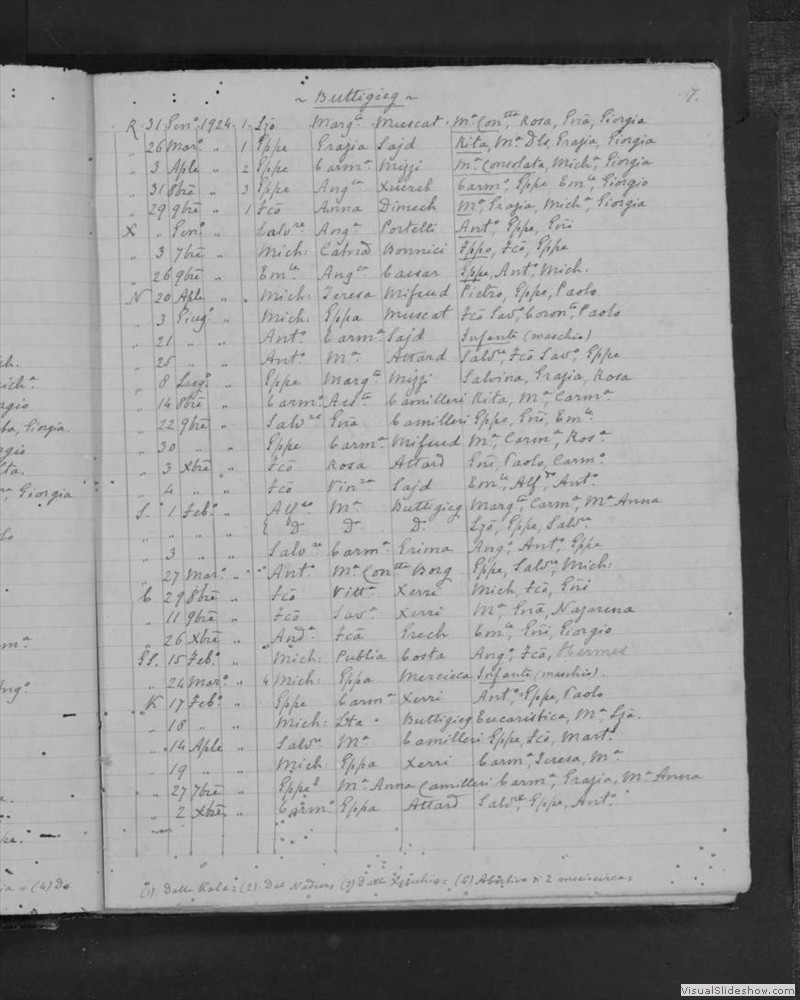 ~ Buttigieg ~ 7.
R. 31 Jen° 1924 1 Ljō Marg.ta Muscat Mª Con.tta, Rosa, Eñā, Giorgia
„ 26 Mar° „ 1 Eppe Grazia Sajd Rita, Mª Dls, Grazia, Giorgia
„ 3 Aple „ 2 Eppe Carmª Mizzi Mª Consolata, Michª, Giorgia
„ 31 8bre „ 3 Eppe Ang.ca Xuereb Carm°, Eppe, Em.le, Giorgio
„ 29 9bre „ 1 Fcō Anna Dimech Mª, Grazia, Michª, Giorgia
X „ Jen° „ Salv.re Angª Portelli Ant°, Eppe, Eñi
„ 3 7bre „ Mich: Catnā Bonnici Eppe, Fcō, Eppe
„ 26 9bre „ Em.le Ang.ca Caesar Eppe, Ant°, Mich.
N 20 Aple „ Mich: Teresa Mifsud Pietro, Eppe, Paolo
„ 3 Giug° „ Mich: Eppa Muscat Fcō Sav°, Coron.to, Paolo
„ 21 „ „ Ant° Carmª Sajd Infante (maschio)
„ 25 „ „ Ant° Mª Attard Salv.re, Fcō Sav°, Eppe
„ 8 Lug° „ Eppe Marg.ta Mizzi Salvina, Grazia, Rosa
„ 14 8bre „ Carm° Ass.ta Camilleri Rita, Mª, Carmª
„ 22 9bre „ Salv.re Eñā Camilleri Eppe, Eñi, Em.le
„ 30 „ „ Eppe Carmª Mifsud Mª, Carmª, Rosª
„ 3 Xbre „ Fcō Rosa Attard Eñi, Paolo, Carm°
„ 4 „ „ Fcō Vin.za Sajd Em.le, Alf.do, Ant°
S. 1 Feb° „ Alf.so Mª Buttigieg Marg.ta, Carmª, Mª Anna
„ „ „ „ { D. D. D. Ljō, Eppe, Salv.re
„ 3 „ „ Salv.re Carmª Grima Ang°, Ant°, Eppe
„ 27 Mar° „ Ant° Mª Con.tta Borg Eppe, Salv.re, Mich:
C 29 8bre „ Fcō Vittª Xerri Mich, Fcō, Eñi
„ 11 9bre „ Fcō Savª Xerri Mª, Eñā, Nazarena
„ 26 Xbre „ Andª Fcā Grech Em.le, Eñi, Giorgio
Gl. 15 Feb° „ Mich: Publia Costa Ang°, Fcō, Hermes
„ 24 Mar° „ 4 Mich: Eppa Mercieca Infante (maschio).
K 17 Feb° „ Eppe Carmª Xerri Ant°, Eppe, Paolo
„ 18 „ „ Mich: Buttigieg Eucaristica, Mª, Ljā.
„ 14 Aple „ Salv.re Mª Camilleri Eppe, Fcō, Mart°
„ 19 „ „ Mich: Eppa Xerri Carmª, Teresa, Mª
„ 27 7bre „ Eppe Mª Anna Camilleri Carmª, Grazia, Mª Anna
„ 2 Xbre „ Carm° Eppa Attard Salv.re, Eppe, Ant°
(1) Dalla Kala: (2) Dal Nadur: (3) Dalla Xeuchia: (4) Abortivo di 2 mesi circa:
ich.
ich.ª
rgio
ba, Giorgia.
ggio
ta.
Giorgia
mª
Ang°
(4) Da
VisualSlideshow.com